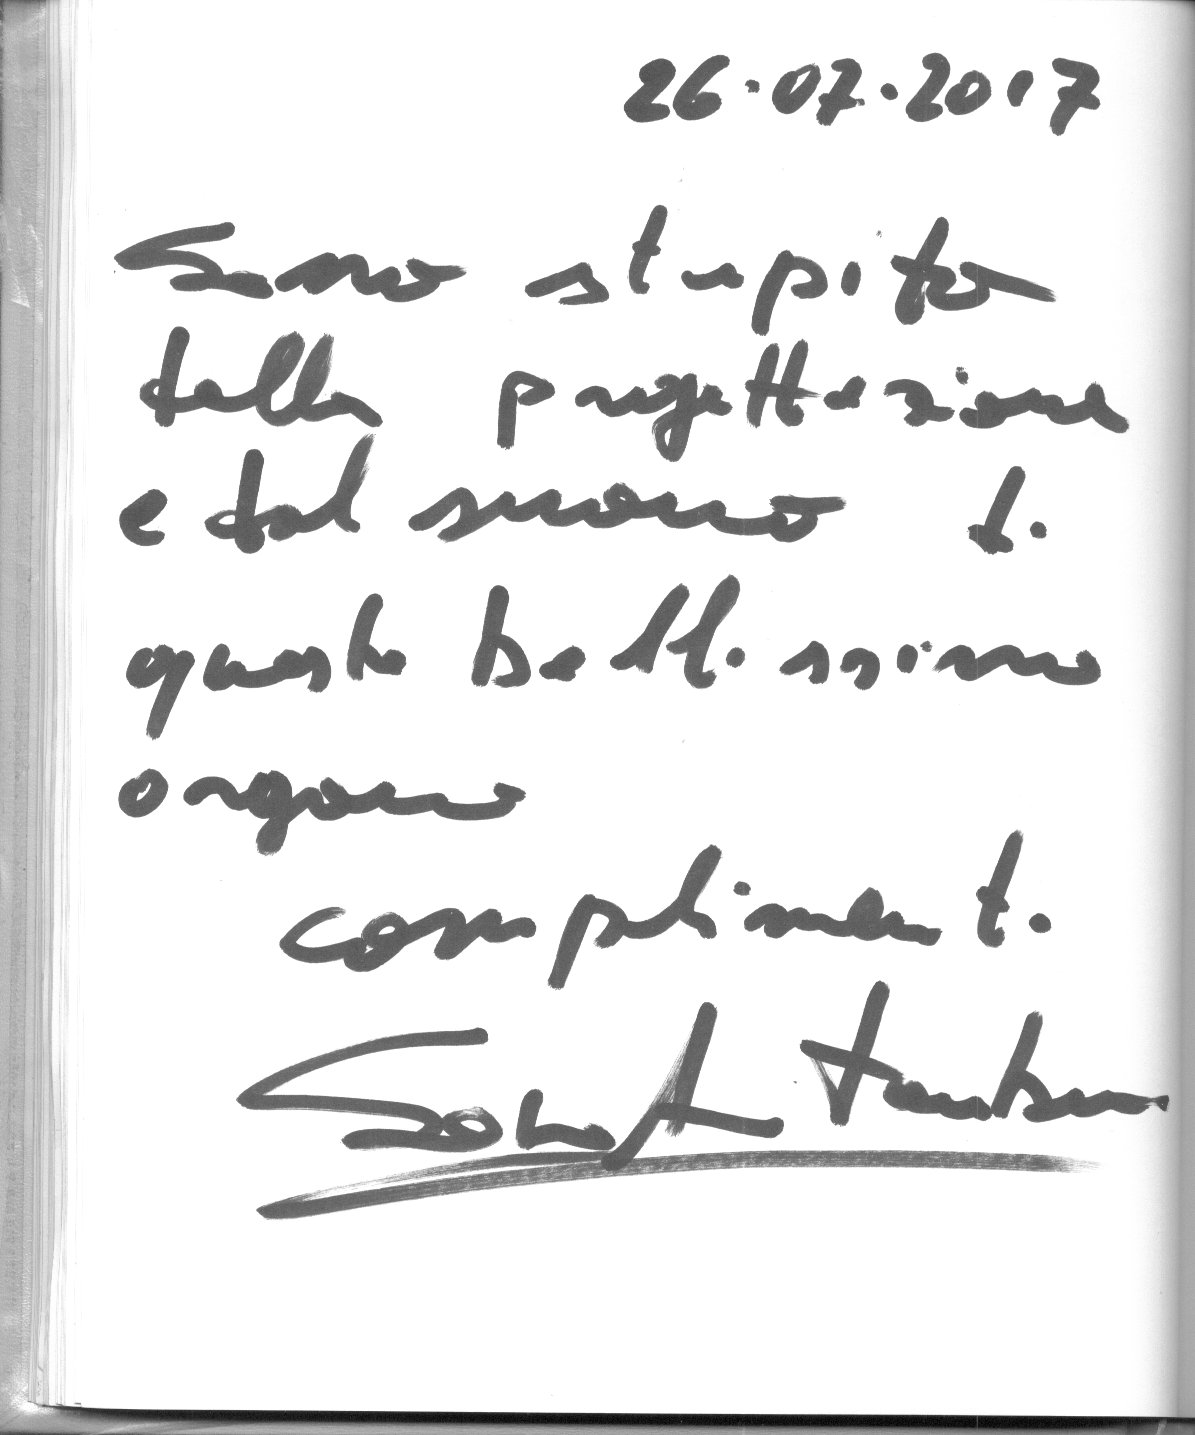 26.07.2017
Sono stupito
della progettazione
e dal suono di
questo bellissimo
organo
complimenti